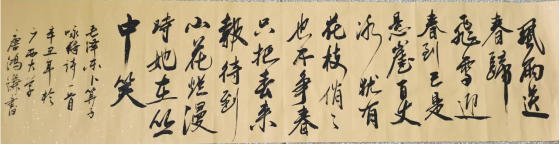 風雨送
春歸
飛雪迎
春到已是
悬崖百丈
冰犹有
花枝俏
也不争春
只把春来
報待到
山花烂漫
時她在丛
中笑
毛泽东卜算子
咏梅詩一首
辛丑年於
广西大学
唐鴻濂書